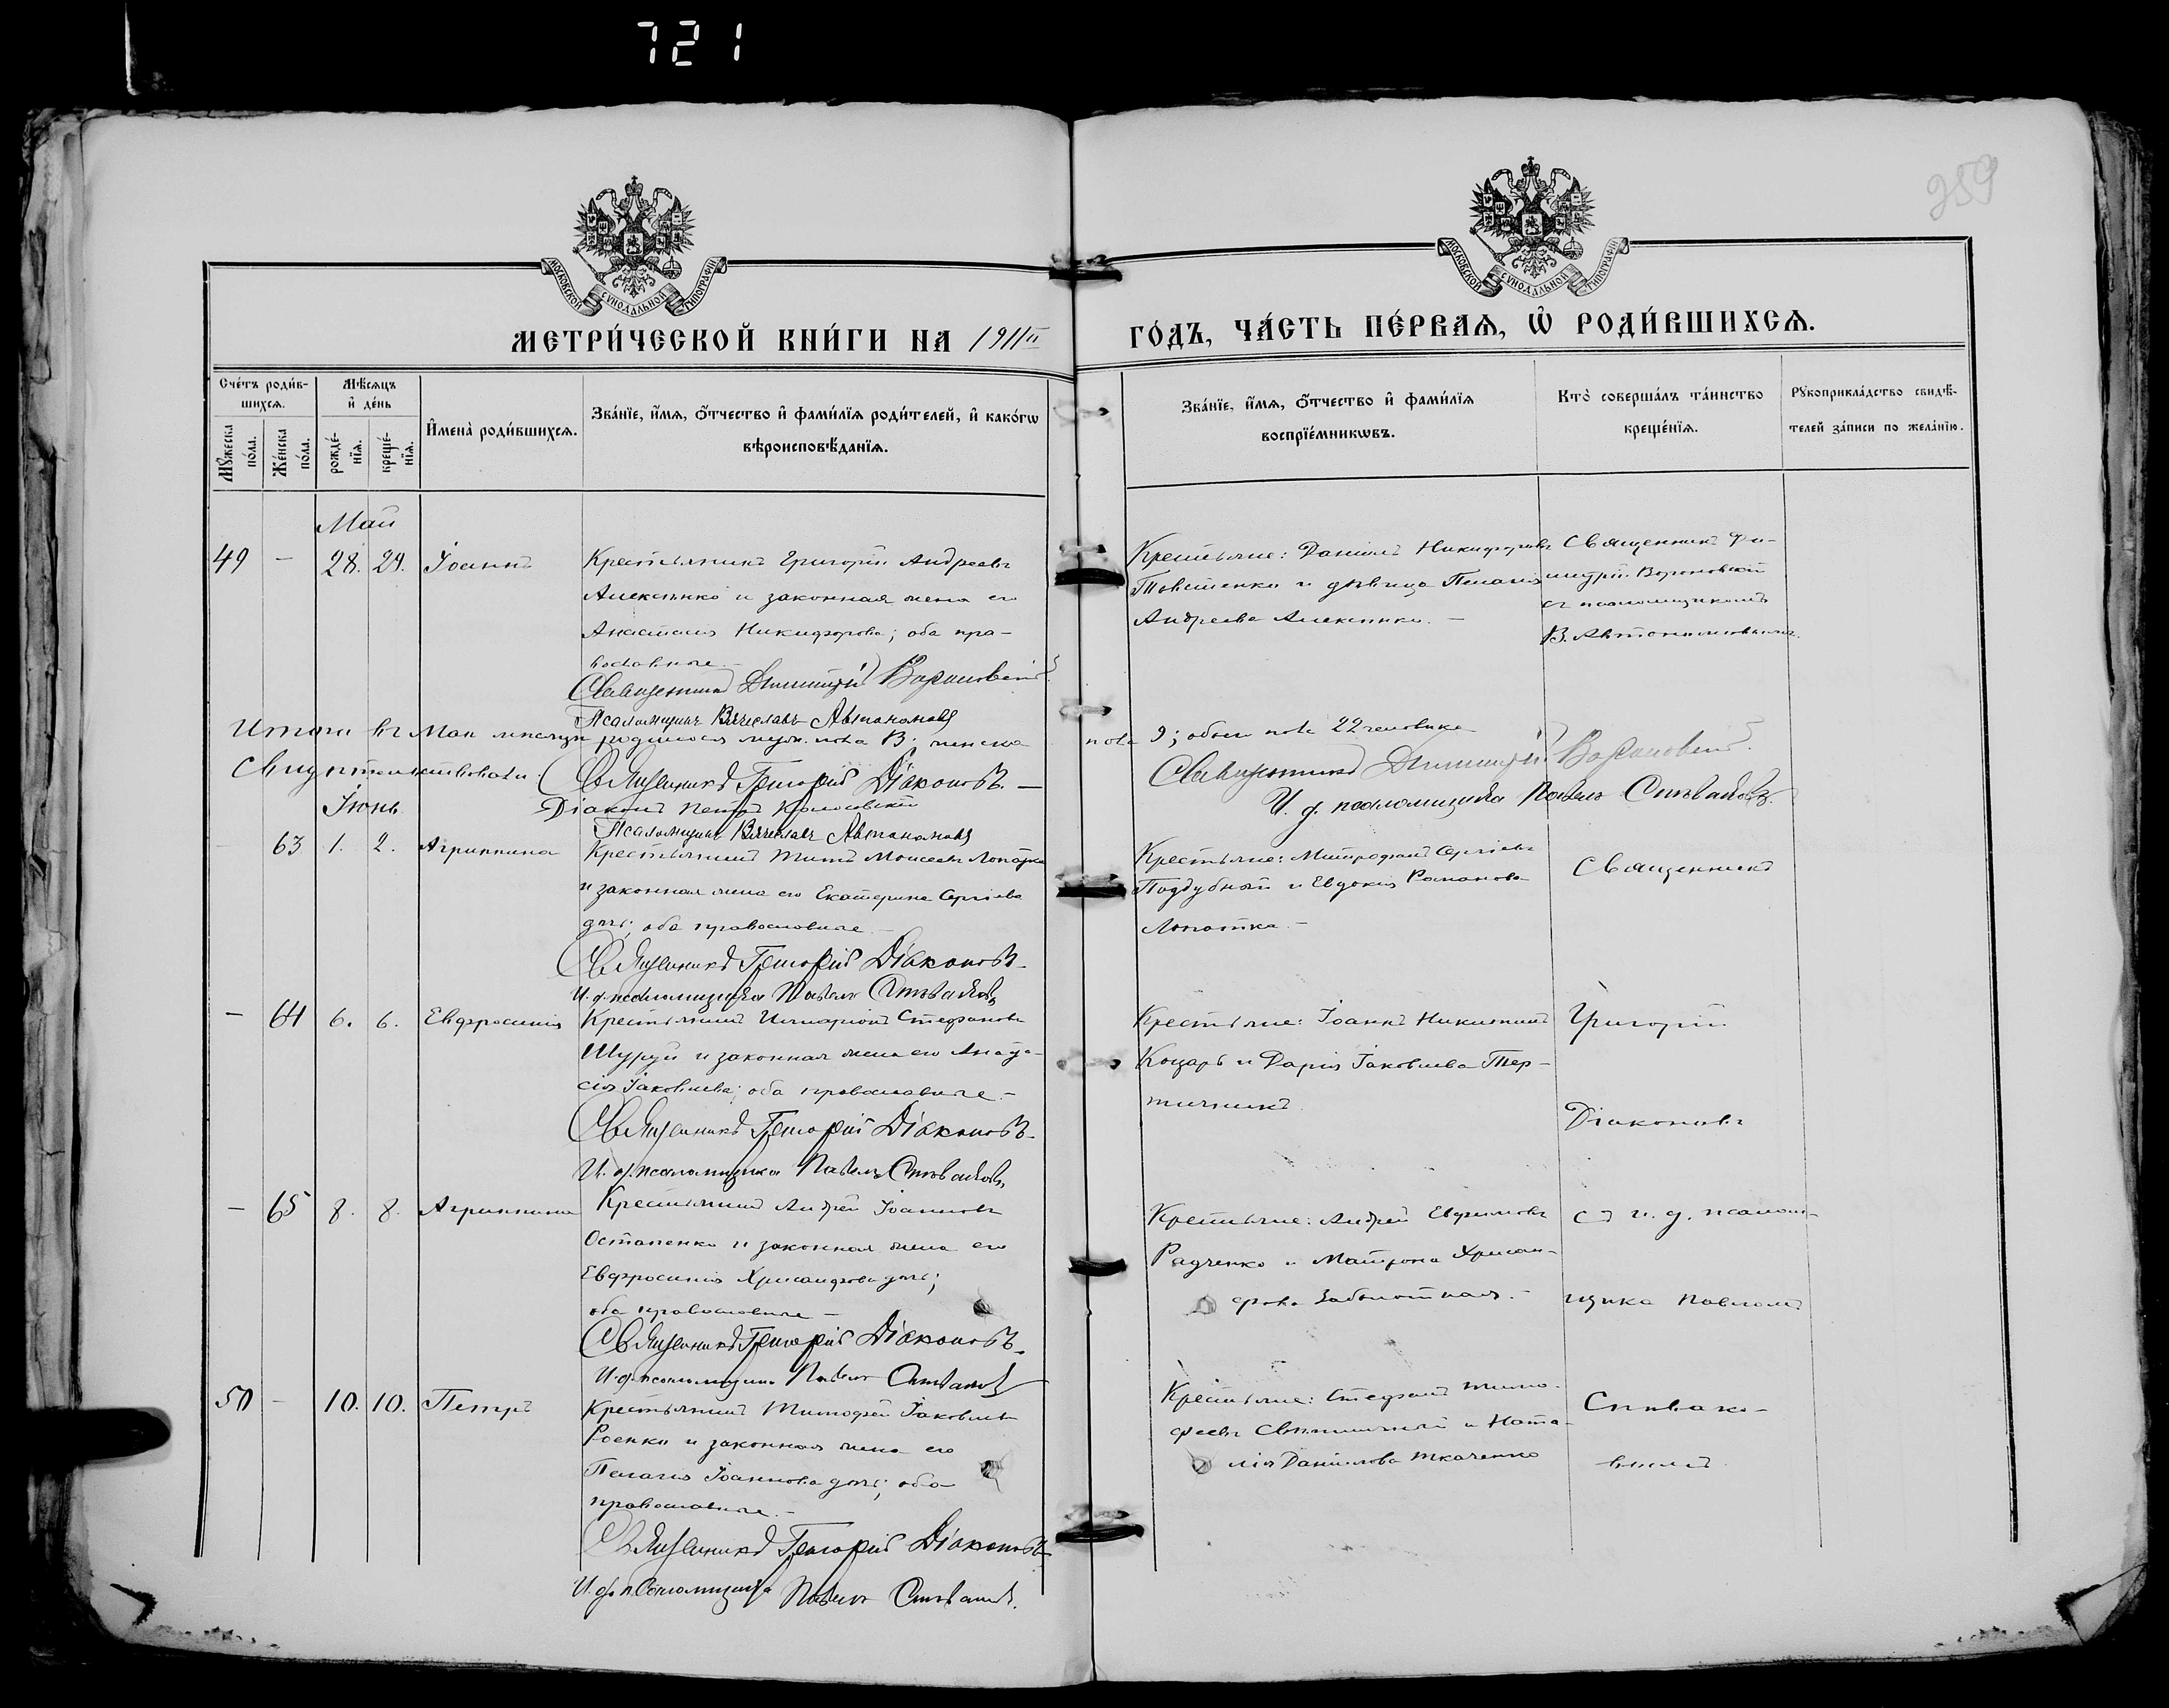 721
259
МОСКОВСКОЙ СѴНОДАЛЬНОЙ ТИПОГРАФІИ
МОСКОВСКОЙ СѴНОДАЛЬНОЙ ТИПОГРАФІИ
МЕТРИ́ЧЕСКОЙ КНИ́ГИ НА 1911й
ГО́ДЪ, ЧА́СТЬ ПЕ́РВАѦ, Ѡ҆ РОДИ́ВШИХСѦ.
Сче́тъ роди́в-
шихсѧ.
Мꙋ́жеска по́ла.
Же́нска по́ла.
Мѣ́сѧцъ
и҆ де́нь
рожде́-нїѧ.
креще́-нїѧ.
И҆мена̀ роди́вшихсѧ.
Зва́нїе, и҆́мѧ, ѻ҆́тчество и҆ фами́лїѧ роди́телей, и҆ како́гѡ
вѣроисповѣ́данїѧ.
Зва́нїе, и҆́мѧ, ѻ҆́тчество и҆ фами́лїѧ
воспрїе́мникѡвъ.
Кто̀ соверша́лъ та́инство
креще́нїѧ.
Рꙋкоприкла́дство свидѣ́-
телей за́писи по жела́нїю.
Май
49 – 28. 29. Іоаннъ
Крестьянинъ Григорій Андреевъ
Алексѣнко и законная жена его
Анастасія Никифорова; оба пра-
вославные. –
Священникъ Димитрій Вороновскій
Псаломщикъ Вячеславъ Автономовъ
Крестьяне: Даніилъ Никифоровъ
Товстенко и дѣвица Пелагія
Андреева Алексѣнко. –
Священникъ Ди-
митрій Вороновскій
съ псаломщикомъ
В. Автономовымъ.
Итого въ Маѣ мѣсяцѣ родилося муж. пола 13; женска
пола 9; обоего пола 22 человѣка
Свидѣтельствовали:
Священникъ Григорій Діаконовъ. –
Діаконъ Петръ
Псаломщикъ Вячеславъ Автономовъ
Священникъ Димитрій Вороновскій.
И. д. псаломщика Павелъ Спѣваковъ.
Іюнь
63 1. 2. Агриппина
Крестьянинъ Титъ Моисеевъ Лопатка
и законная жена его Екатерина Сергіева
дочь; оба православные. –
Священникъ Григорій Діаконовъ.
И. д. псаломщика Павелъ Спѣваковъ
Крестьяне: Митрофанъ Сергіевъ
Поддубный и Евдокія Романова
Лопатка. –
Священникъ
– 64 6. 6. Евфросинія
Крестьянинъ Илларіонъ Стефановъ
Шуруй и законная жена его
Іаковлева; оба православные. –
Священникъ Григорій Діаконовъ.
И. д. псаломщика Павелъ Спѣваковъ
Крестьяне: Іоаннъ Никитинъ
Коцарь и Дарія Іаковлева Тер-
Григорій
Діаконовъ
– 65 8. 8. Агриппина
Крестьянинъ Андрей Іоанновъ
Остапенко и законная жена его
Евфросинія Хрисанфова дочь;
оба православные –
Священникъ Григорій Діаконовъ.
И. д. псаломщика Павелъ Спѣваковъ
Крестьяне: Андрей Евфимовъ
Радченко и Матрона Хрисан-
фова Заболотная. –
съ и. д. псалом-
щика Павломъ
50 – 10. 10. Петръ
Крестьянинъ Тимофей Іаковлевъ
Роенко и законная жена его
Пелагія Іоаннова дочь; оба
православные. –
Священникъ Григорій Діаконовъ
И. д. псаломщика Павелъ Спѣваковъ.
Крестьяне: Стефанъ Тимо-
феевъ и Ната-
лія Даніилова Ткаченко
Спѣвако-
вымъ.